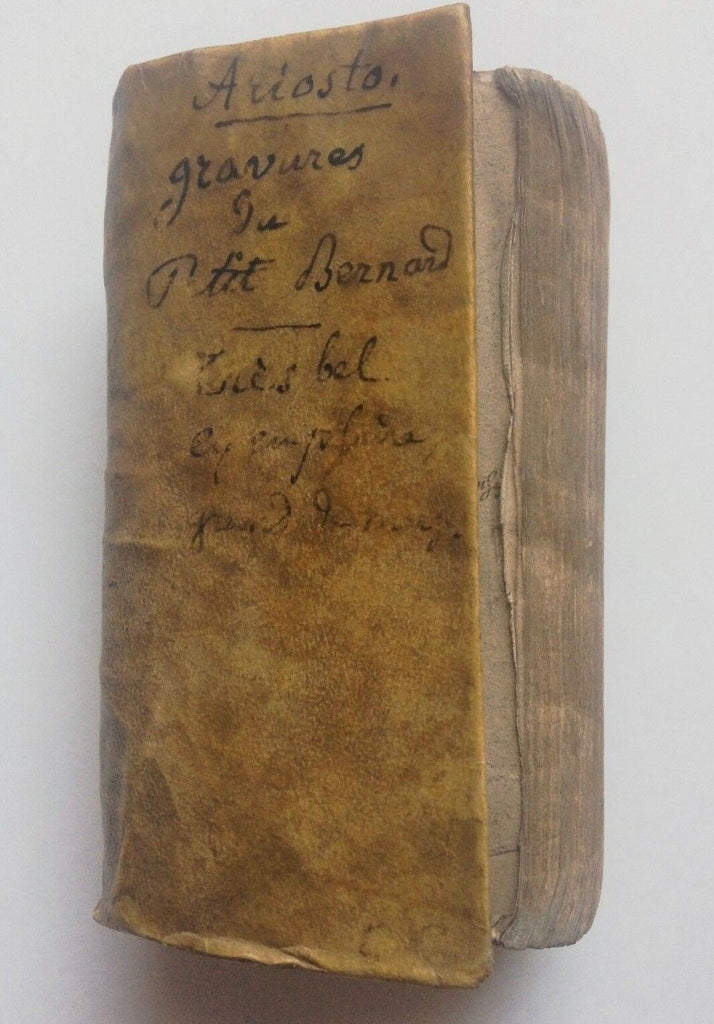 Ariosto.
gravures
du
Petit Bernard
très bel
exemplaire,
grand de marg.